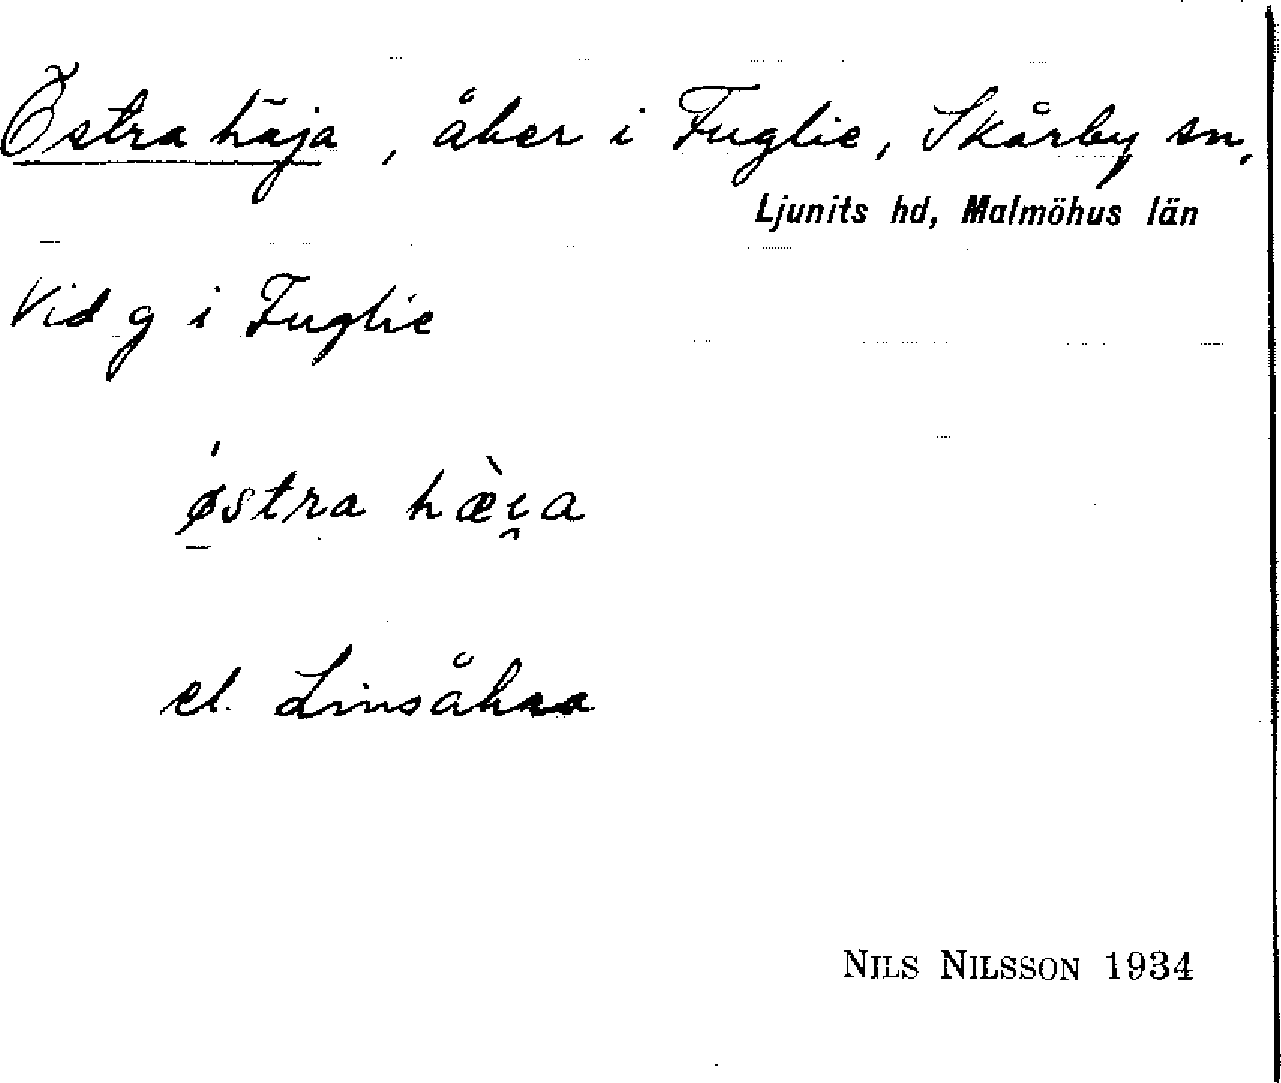 Östra häja, åker i Fuglie, Skårby sn,
Ljunits hd, Malmöhus län
Vid g i Fuglie
ǿstra hæ̀i̯a
el. Linsåkra
NILS NILSSON 1934